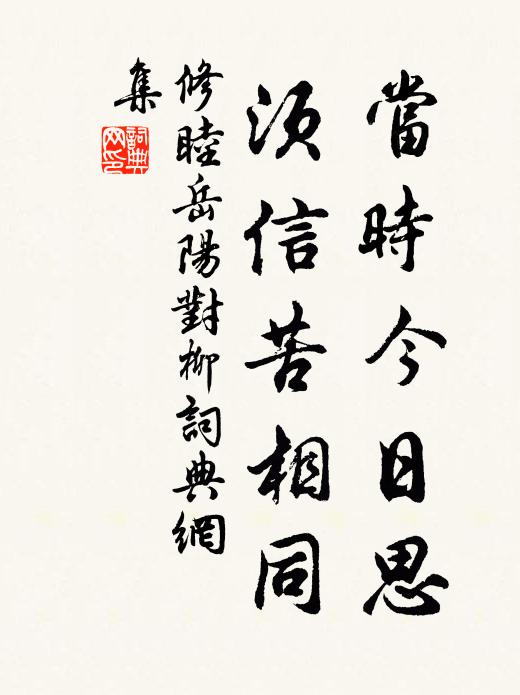 當時今日思
須信苦相同
修睦岳陽對柳詞典網
集
詞典网印